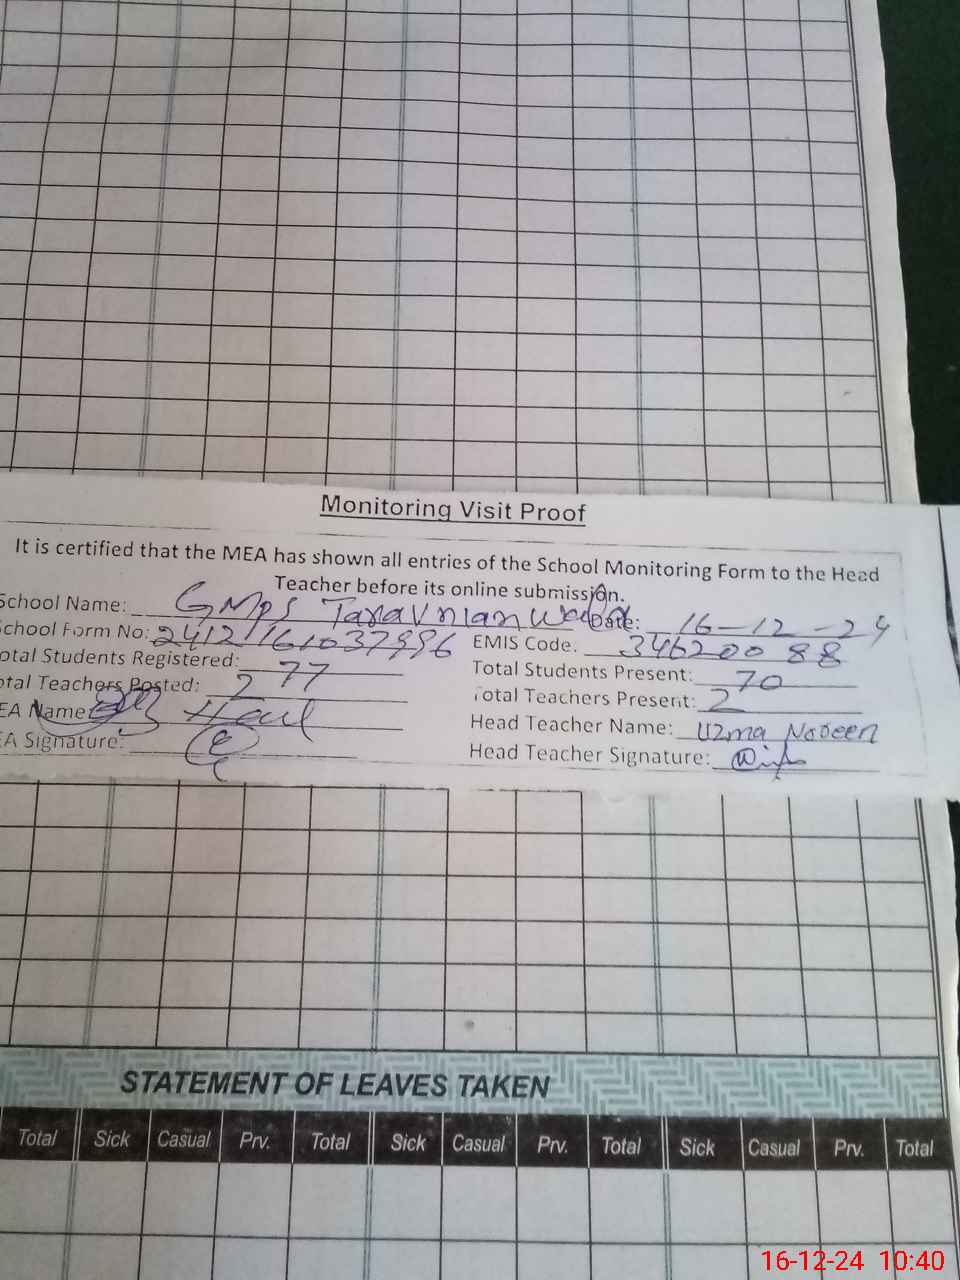 Monitoring Visit Proof
It is certified that the MEA has shown all entries of the School Monitoring Form to the Head
Teacher before its online submission.
School Name: GMPS Date: 16-12-24
School Form No: 2412161037996 EMIS Code: 34620088
otal Students Registered: 77 Total Students Present: 70
otal Teachers Posted: 2 Total Teachers Present: 2
EA Name: Head Teacher Name: Uzma Noreen
EA Signature: Head Teacher Signature:
STATEMENT OF LEAVES TAKEN
Total Sick Casual Prv. Total Sick Casual Prv. Total Sick Casual Prv. Total
16-12-24 10:40